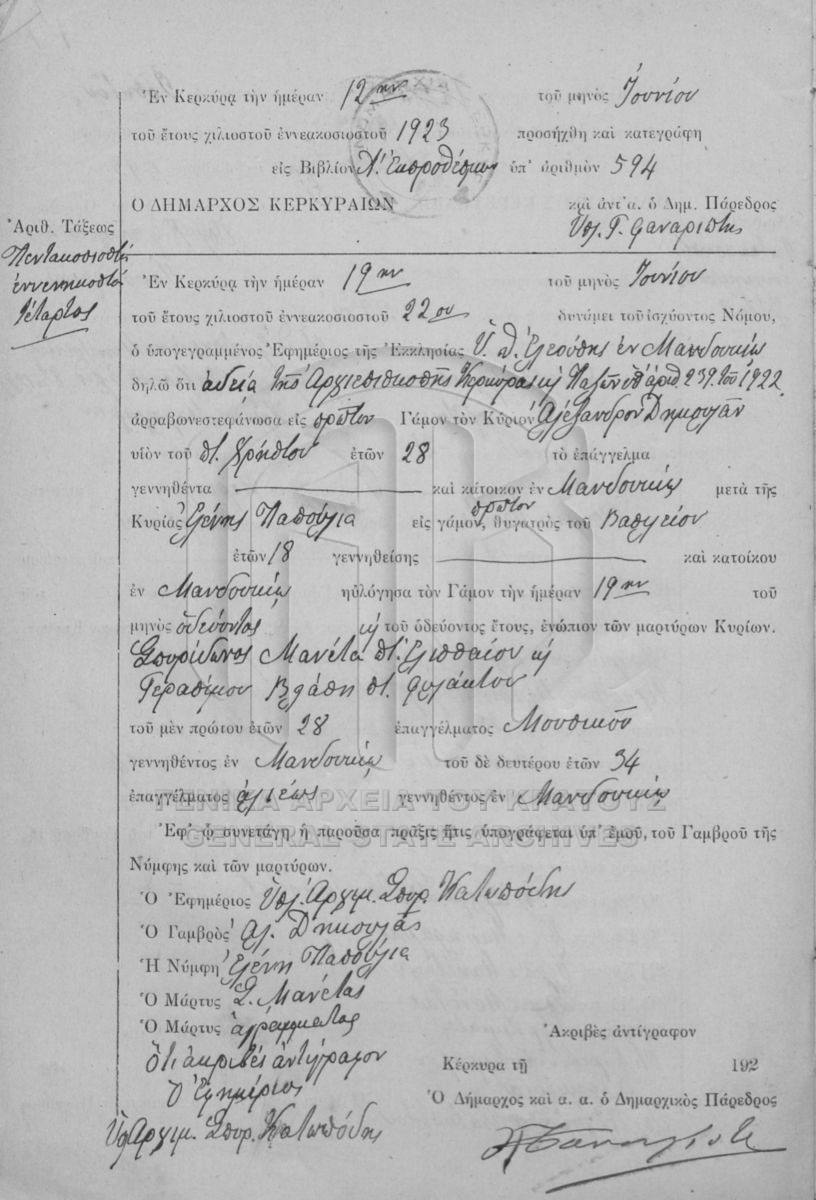 Ἐν Κερκύρᾳ τὴν ἡμέραν 12ην τοῦ μηνὸς Ἰουνίου
τοῦ ἔτους χιλιοστοῦ ἐννεακοσιοστοῦ 1923 προσήχθη καὶ κατεγράφη
εἰς Βιβλίον Λ. Ἐκπροθέσμως ὑπ' ἀριθμὸν 594
Ο ΔΗΜΑΡΧΟΣ ΚΕΡΚΥΡΑΙΩΝ καὶ ἀντ' α. ὁ Δημ. Πάρεδρος
Ὑπ.
Ἀριθ. Τάξεως
Πεντακοσιοστὴ
ἐννενηκοστὴ
τέταρτος
Ἐν Κερκύρᾳ τὴν ἡμέραν 19ην τοῦ μηνὸς Ἰουνίου
τοῦ ἔτους χιλιοστοῦ ἐννεακοσιοστοῦ 22ου δυνάμει τοῦ ἰσχύοντος Νόμου,
ὁ ὑπογεγραμμένος Ἐφημέριος τῆς Ἐκκλησίας Ὑ. Θ. Ἐλεούσης ἐν Μανδουκίῳ
δηλῶ ὅτι ἀδείᾳ τῆς Ἀρχιεπισκοπῆς Κερκύρας κ Παξῶν ὑπ' ἀριθ. 239 τοῦ 1922
ἀρραβωνεστεφάνωσα εἰς πρῶτον Γάμον τὸν Κύριον Ἀλέξανδρον Δημουλᾶν
υἱὸν τοῦ π. Χρήστου ἐτῶν 28 τὸ ἐπάγγελμα
γεννηθέντα καὶ κάτοικον ἐν Μανδουκίῳ μετὰ τῆς
Κυρίας Ἑλένης Παπούλια εἰς πρῶτον γάμον, θυγατρὸς τοῦ Βασιλείου
ἐτῶν 18 γεννηθείσης καὶ κατοίκου
ἐν Μανδουκίῳ ηὐλόγησα τὸν Γάμον τὴν ἡμέραν 19ην τοῦ
μηνὸς ὁδεύοντος κ τοῦ ὁδεύοντος ἔτους, ἐνώπιον τῶν μαρτύρων Κυρίων.
Σπυρίδωνος Μανέτα π. Ἐλισσαίου κ
Γερασίμου Βλάση π. Φυλάκτου
τοῦ μὲν πρώτου ἐτῶν 28 ἐπαγγέλματος Μουσικοῦ
γεννηθέντος ἐν Μανδουκίῳ τοῦ δὲ δευτέρου ἐτῶν 34
ἐπαγγέλματος ἁλιέως γεννηθέντος ἐν Μανδουκίῳ
ΓΕΝΙΚΑ ΑΡΧΕΙΑ ΤΟΥ ΚΡΑΤΟΥΣ
GENERAL STATE ARCHIVES
Ἐφ' ᾧ συνετάγη ἡ παροῦσα πρᾶξις ἥτις ὑπογράφεται ὑπ' ἐμοῦ, τοῦ Γαμβροῦ τῆς
Νύμφης καὶ τῶν μαρτύρων.
Ὁ Ἐφημέριος Ὑπ. Ἀρχιμ. Σπυρ. Κατωπόδης
Ὁ Γαμβρὸς Ἀλ. Δημουλᾶς
Ἡ Νύμφη Ἑλένη Παπούλια
Ὁ Μάρτυς Σ. Μανέτας
Ὁ Μάρτυς ἀγράμματος
Ὅτι ἀκριβὲς ἀντίγραφον
Ὁ Ἐφημέριος
Ὑπ. Ἀρχιμ. Σπυρ. Κατωπόδης
Ἀκριβὲς ἀντίγραφον
Κέρκυρα τῇ 192
Ὁ Δήμαρχος καὶ α. α. ὁ Δημαρχικὸς Πάρεδρος